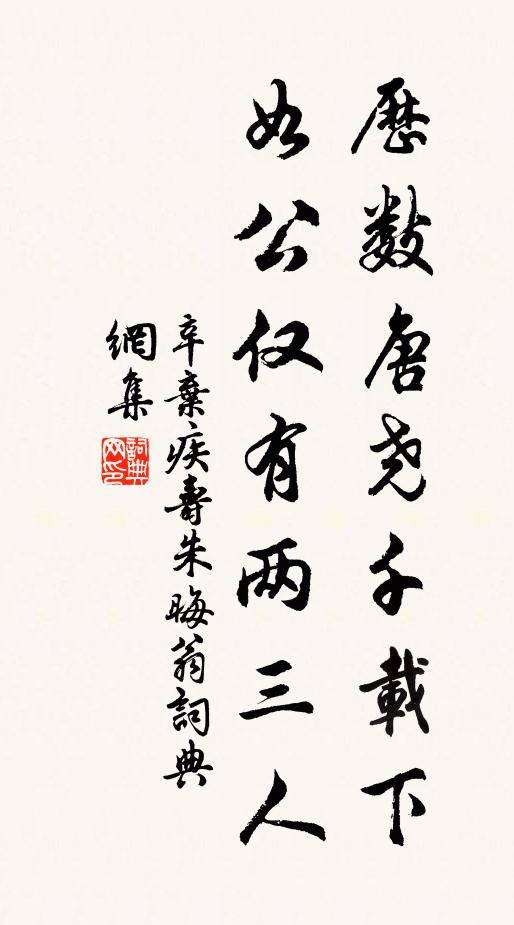 歷数唐尧千載下
如公仅有两三人
辛棄疾壽朱晦翁詞典
網集
詞典网印